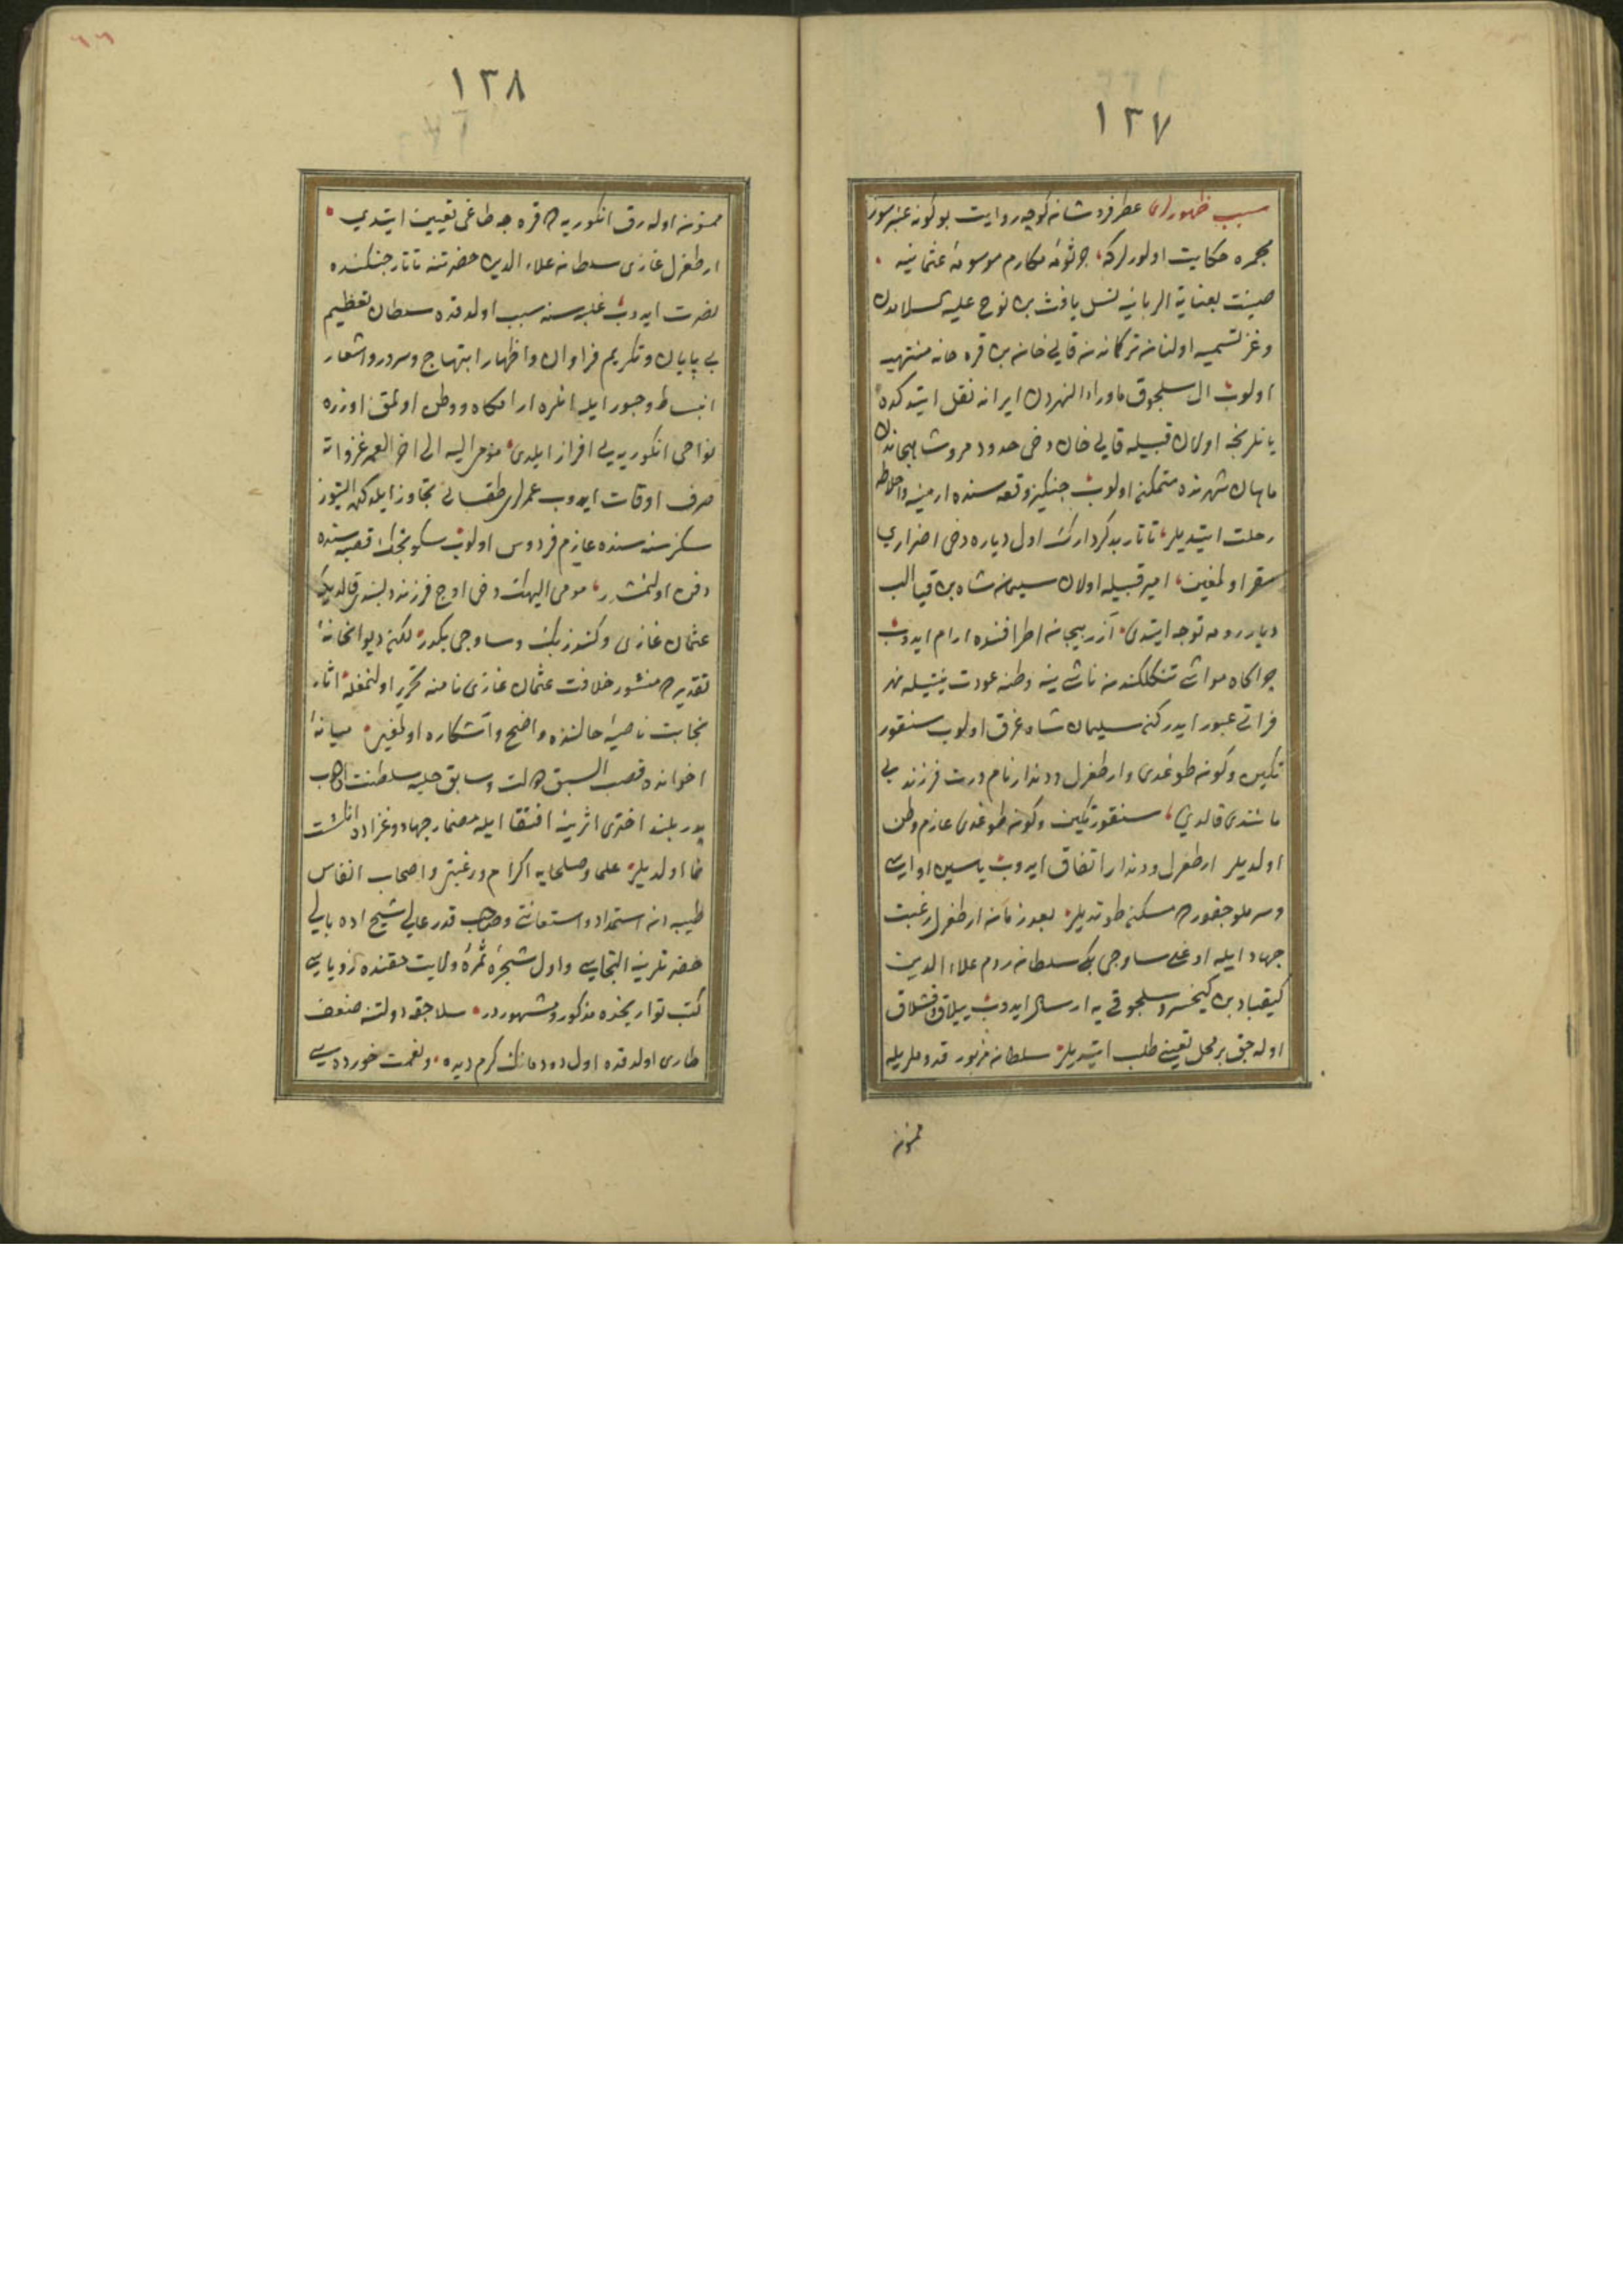 ١٣٧
سبب ظهورلری عطرفروشان كوچه روایت بوكونه عنبرسوز
مجمرهٔ حكایت اولورلركه جرثومهٔ مكارم موسومهٔ عثمانیه
صینت بعنایة الربانیه نسل یافث بن نوح علیه السلامدن
وغز تسمیه اولنان تركماندن قایی خان بن قره خانه منتهیه
اولوب ال سلجوق ماوراء النهردن ایرانه نقل ایتدكده
یانلرنجه اولان قبیله قایی خان دخی حدود مروشاهیجاندن
ماهان شهرنده متمكن اولوب جنكیز وقعه سنده ارمنیه واخلاطه
رحلت ایتدیلر تاتار بدكردارك اول دیاره دخی اضراری
مقرر اولمغین امیر قبیله اولان سلیمان شاه بن قیا الب
دیار رومه توجه ایتدی آذربیجان اطرافنده ارام ایدوب
چراكاه مواشی تنكلكندن ناشی ینه وطنه عودت نیتیله نهر
فراتی عبور ایدركن سلیمان شاه غرق اولوب سنقور
تكین وكون طوغدی وارطغرل ودندار نام درت فرزند بی
مانندی قالدی سنقور تكین وكون طوغدی عازم وطن
اولدیلر ارطغرل ودندار اتفاق ایدوب یاسین اواسی
وسرملو جقورن مسكن طوتدیلر بعد زمان ارطغرل رغبت
جهاد ایله اوغلی ساوجی بكی سلطان روم علاء الدین
كیقباد بن كیخسرو سلجوقی یه ارسال ایدوب ییلاق وقشلاق
اوله جق بر محل تعیینی طلب ایتدیلر سلطان مزبور قدوملریله
ممنون
١٣٨
ممنون اوله رق انكوریه ده قره جه طاغی تعیین ایتدی
ارطغرل غازی سلطان علاء الدین حضرتنه تاتار جنكنده
نصرت ایدوب غلبه سنه سبب اولدقده سلطان تعظیم
بی پایان وتكریم فراوان واظهار ابتهاج وسرور واشعار
انبساط وحبور ایله انلره ارامكاه ووطن اولمق اوزره
نواحی انكوریه یی افراز ایلدی مومی الیه الی اخر العمر غزواته
صرف اوقات ایدوب عمرلری طقسانی تجاوز ایلدكده التیوز
سكزسنه سنده عازم فردوس اولوب سكوتجك قصبه سنده
دفن اولنمشدر مومی الیهك دخی اوج فرزند دلبندی قالدیكه
عثمان غازی وكندز بك وساوجی بكدر لكن دیوانخانهٔ
تقدیرده منشور خلافت عثمان غازی نامنه تحریر اولنمغله اثار
نجابت ناصیهٔ حالنده واضح واشكاره اولمغین میانهٔ
اخوانده قصب السبق دولت وسابق حلبه سلطنت اولوب
پدر بلند اختری اثرینه اقتفا ایله مضمار جهاد وغزاده انكشت
نما اولدیلر علما وصلحایه اكرام ورغبتی واصحاب انفاس
طیبه دن استمداد واستعانتی وصاحب قدر عالی شیخ اده بالی
حضرتلرینه التجاسی واول شجرهٔ ثمرهٔ ولایت حقنده رؤیاسی
كتب تواریخده مذكور ومشهوردر سلاجقه دولتنه ضعف
طاری اولدقده اول دودمانك كرم دیده ونعمت خورده سی